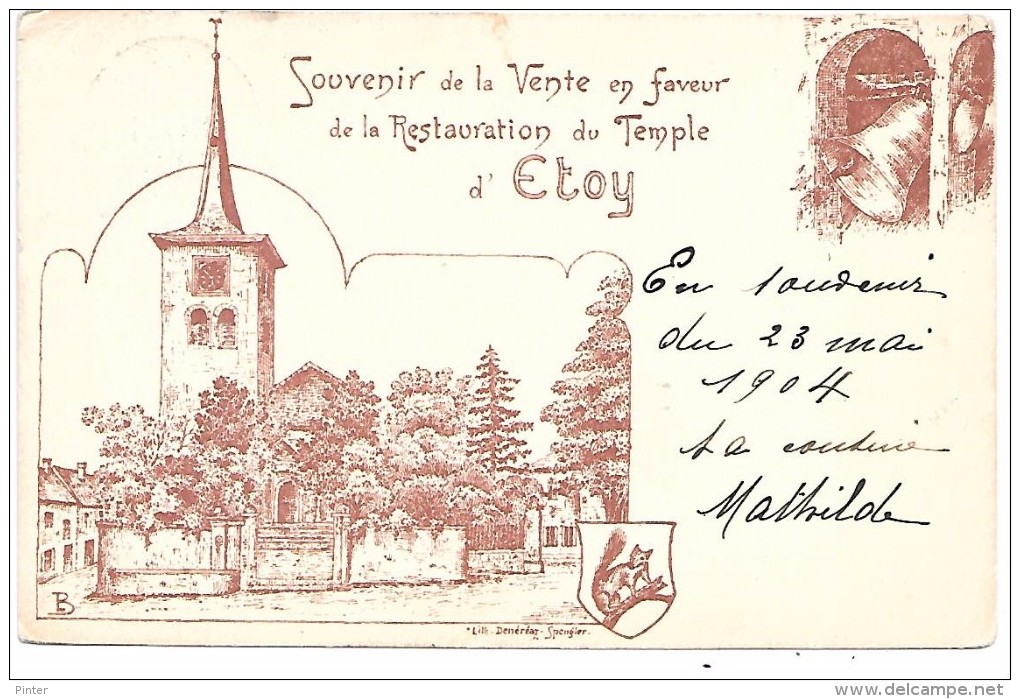 Souvenir de la Vente en faveur
de la Restauration du Temple
d' Etoy
En souvenir
du 23 mai
1904
ta cousine
Mathilde
B
Lith. Denéréaz-Spengler.
Pinter
http://www.delcampe.net